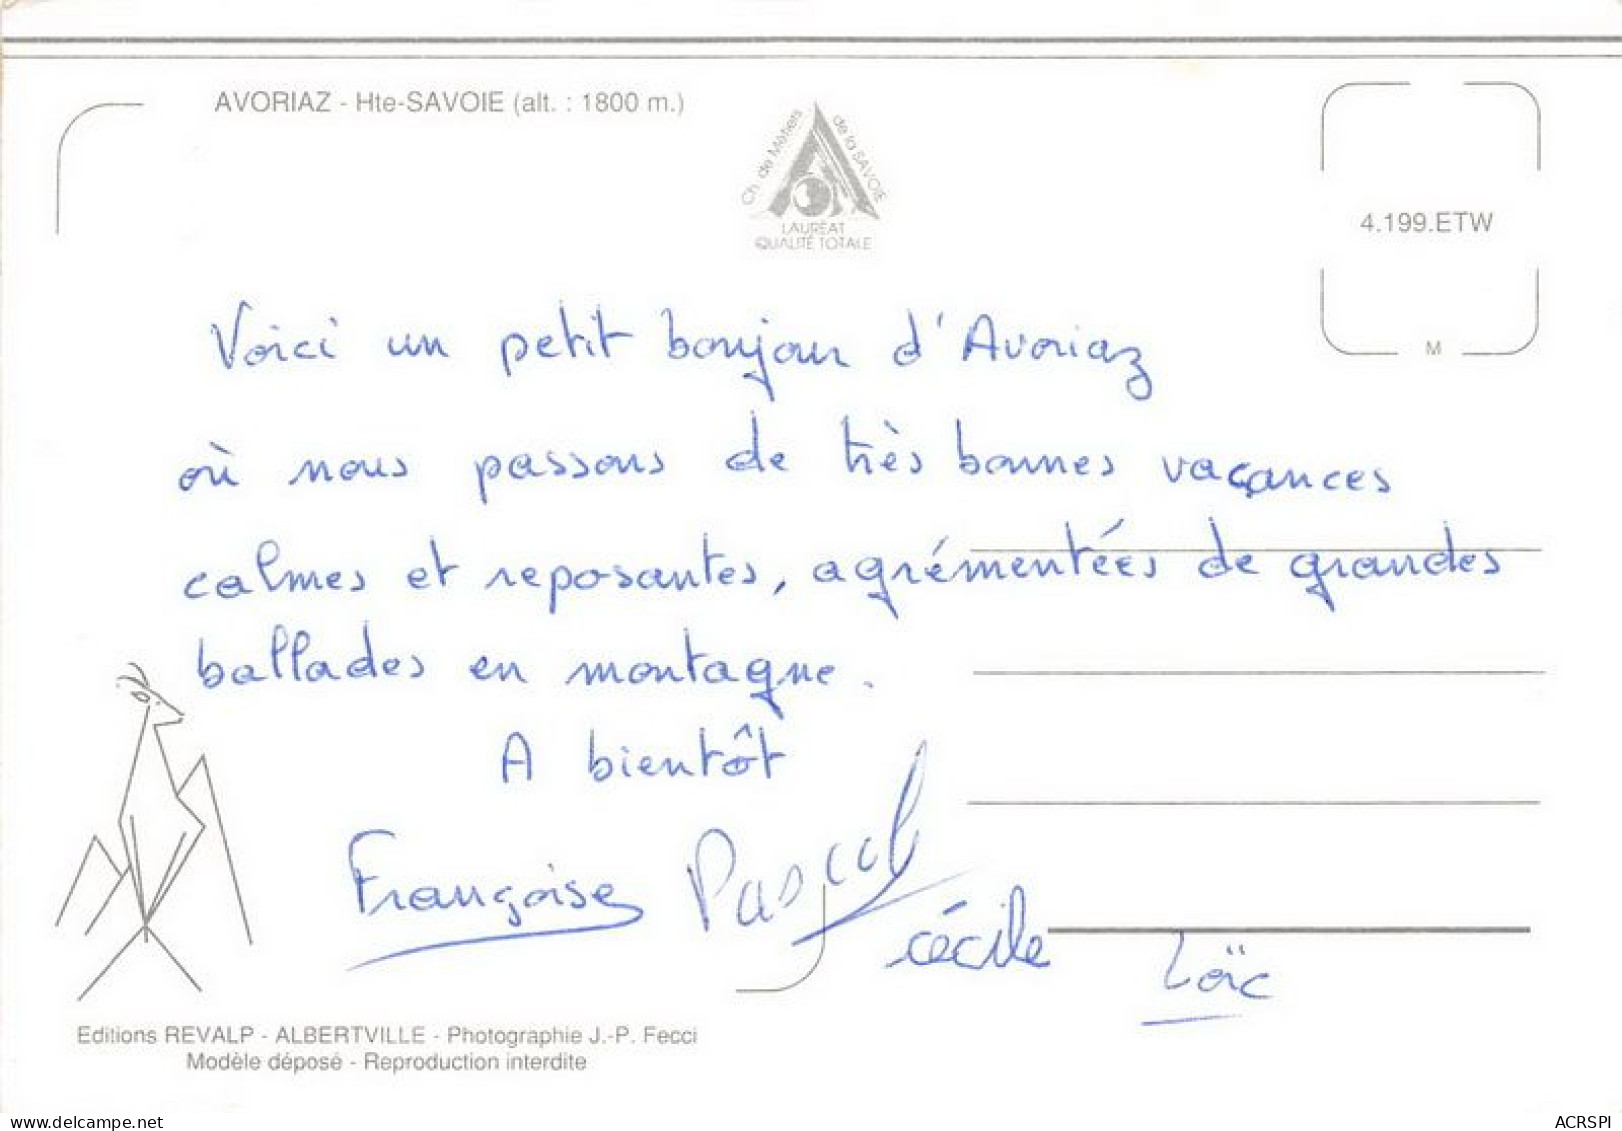 AVORIAZ - Hte-SAVOIE (alt. : 1800 m.)
Ch. de Métiers de la SAVOIE
LAURÉAT
QUALITÉ TOTALE
4.199.ETW
M
Voici un petit bonjour d'Avoriaz
où nous passons de très bonnes vacançes
calmes et reposantes, agrémentées de grandes
ballades en montagne.
A bientôt
Françoise Pascal
cécile Loïc
Editions REVALP - ALBERTVILLE - Photographie J.-P. Fecci
Modèle déposé - Reproduction interdite
www.delcampe.net
ACRSPI